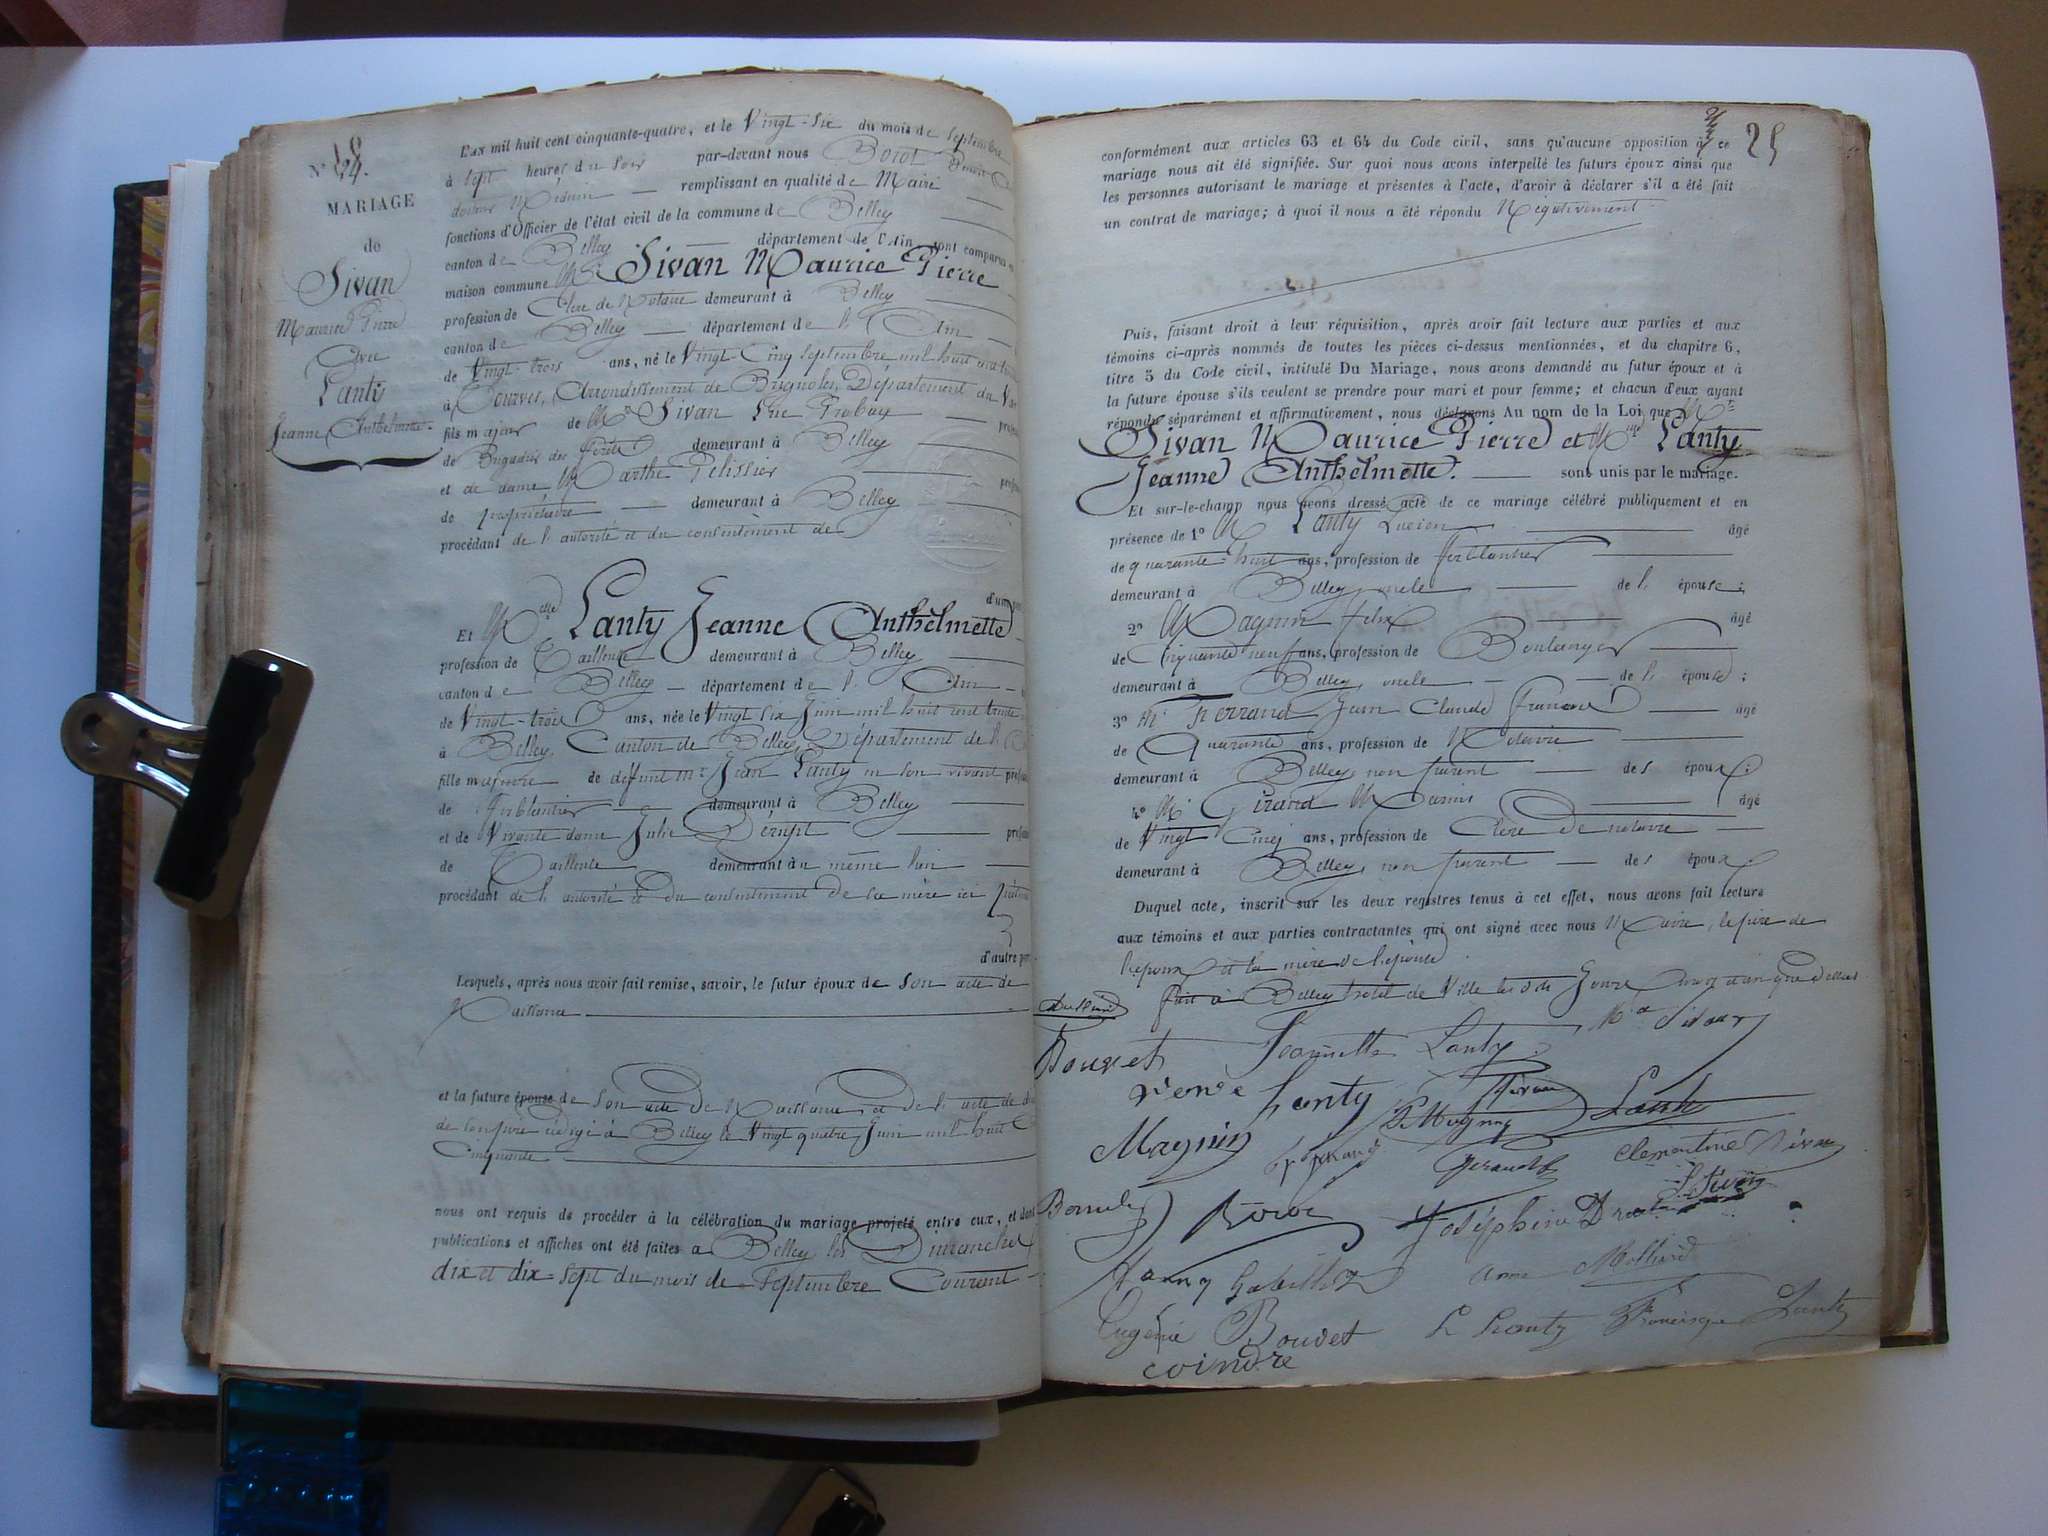 Nº 48.
MARIAGE
de
Sivan
Maurice Pierre
Avec
Lanty
Jeanne Anthelmette.
L'an mil huit cent cinquante-quatre, et le Vingt-Six du mois de Septembre
à Sept heures du Soir par-devant nous Borot Benoit
docteur Médecin — remplissant en qualité de Maire —
fonctions d'Officier de l'état civil de la commune de Belley
canton de Belley département de l'Ain, sont comparus en
maison commune Mr. Sivan Maurice Pierre
profession de Clerc de Notaire demeurant à Belley
canton de Belley — département de l'Ain
de Vingt-trois ans, né le Vingt Cinq Septembre mil huit cent
à Tourves, Arrondissement de Brignoles, Département du Var
fils majeur de Mr Sivan Luc
de Brigadier des forêts demeurant à Belley
et de dame Marthe Pelissier
de propriétaire — demeurant à Belley
procédant de l'autorité et du consentement de
d'une part
Et Melle Lanty Jeanne Anthelmette
profession de Tailleuse demeurant à Belley
canton de Belley — département de l'Ain —
de Vingt-trois ans, née le Vingt Six Juin mil huit cent trente
à Belley, Canton de Belley, Département de l'Ain
fille majeure de défunt Mr. Jean Lanty en son vivant
de Ferblantier demeurant à Belley
et de Vivante dame Julie
de Tailleuse demeurant au même lieu
procédant de l'autorité et du consentement de sa mère ici présente
d'autre part
Lesquels, après nous avoir fait remise, savoir, le futur époux de son acte de
Naissance
et la future épouse de son acte de Naissance et de l'acte de
de son père rédigé à Belley le Vingt quatre Juin mil huit
Cinquante
nous ont requis de procéder à la célébration du mariage projeté entre eux, et dont
publications et affiches ont été faites à Belley les Dimanches
dix et dix-sept du mois de Septembre Courant —
25
conformément aux articles 63 et 64 du Code civil, sans qu'aucune opposition à ce
mariage nous ait été signifiée. Sur quoi nous avons interpellé les futurs époux ainsi que
les personnes autorisant le mariage et présentes à l'acte, d'avoir à déclarer s'il a été fait
un contrat de mariage; à quoi il nous a été répondu Négativement.
Puis, faisant droit à leur réquisition, après avoir fait lecture aux parties et aux
témoins ci-après nommés de toutes les pièces ci-dessus mentionnées, et du chapitre 6,
titre 5 du Code civil, intitulé Du Mariage, nous avons demandé au futur époux et à
la future épouse s'ils veulent se prendre pour mari et pour femme; et chacun d'eux ayant
répondu séparément et affirmativement, nous déclarons Au nom de la Loi que Mr.
Sivan Maurice Pierre et Melle Lanty
Jeanne Anthelmette. — sont unis par le mariage.
Et sur-le-champ nous avons dressé acte de ce mariage célébré publiquement et en
présence de 1º M Lanty Lucien — âgé
de quarante-huit ans, profession de Ferblantier
demeurant à Belley, oncle — de l'épouse;
2º Magnin Felix âgé
de Cinquante neuf ans, profession de Boulanger
demeurant à Belley, oncle — de l'épouse;
3º Mr Ferrand Jean Claude — âgé
de Quarante ans, profession de Notaire
demeurant à Belley, non parent — des époux;
4º M. Girand — âgé
de Vingt Cinq ans, profession de Clerc de notaire —
demeurant à Belley, non parent — des époux.
Duquel acte, inscrit sur les deux registres tenus à cet effet, nous avons fait lecture
aux témoins et aux parties contractantes qui ont signé avec nous Maire, le père de
l'époux et la mère de l'épouse.
fait à Belley hotel de Ville les jour mois et an que dessus
Bouvet Jeannette Lanty Mce Sivan
veuve Lanty Sivan Lanty
Magnin Girand Clementine Sivan
Borot Joséphine
Anna Molliard
Eugénie Bouvet L Lanty Lanty
coindre